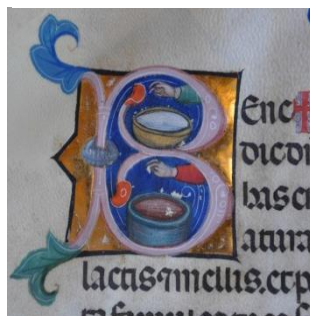 BEne ✠
dic do
has cr
atura
lactis ⁊ mellis. et p